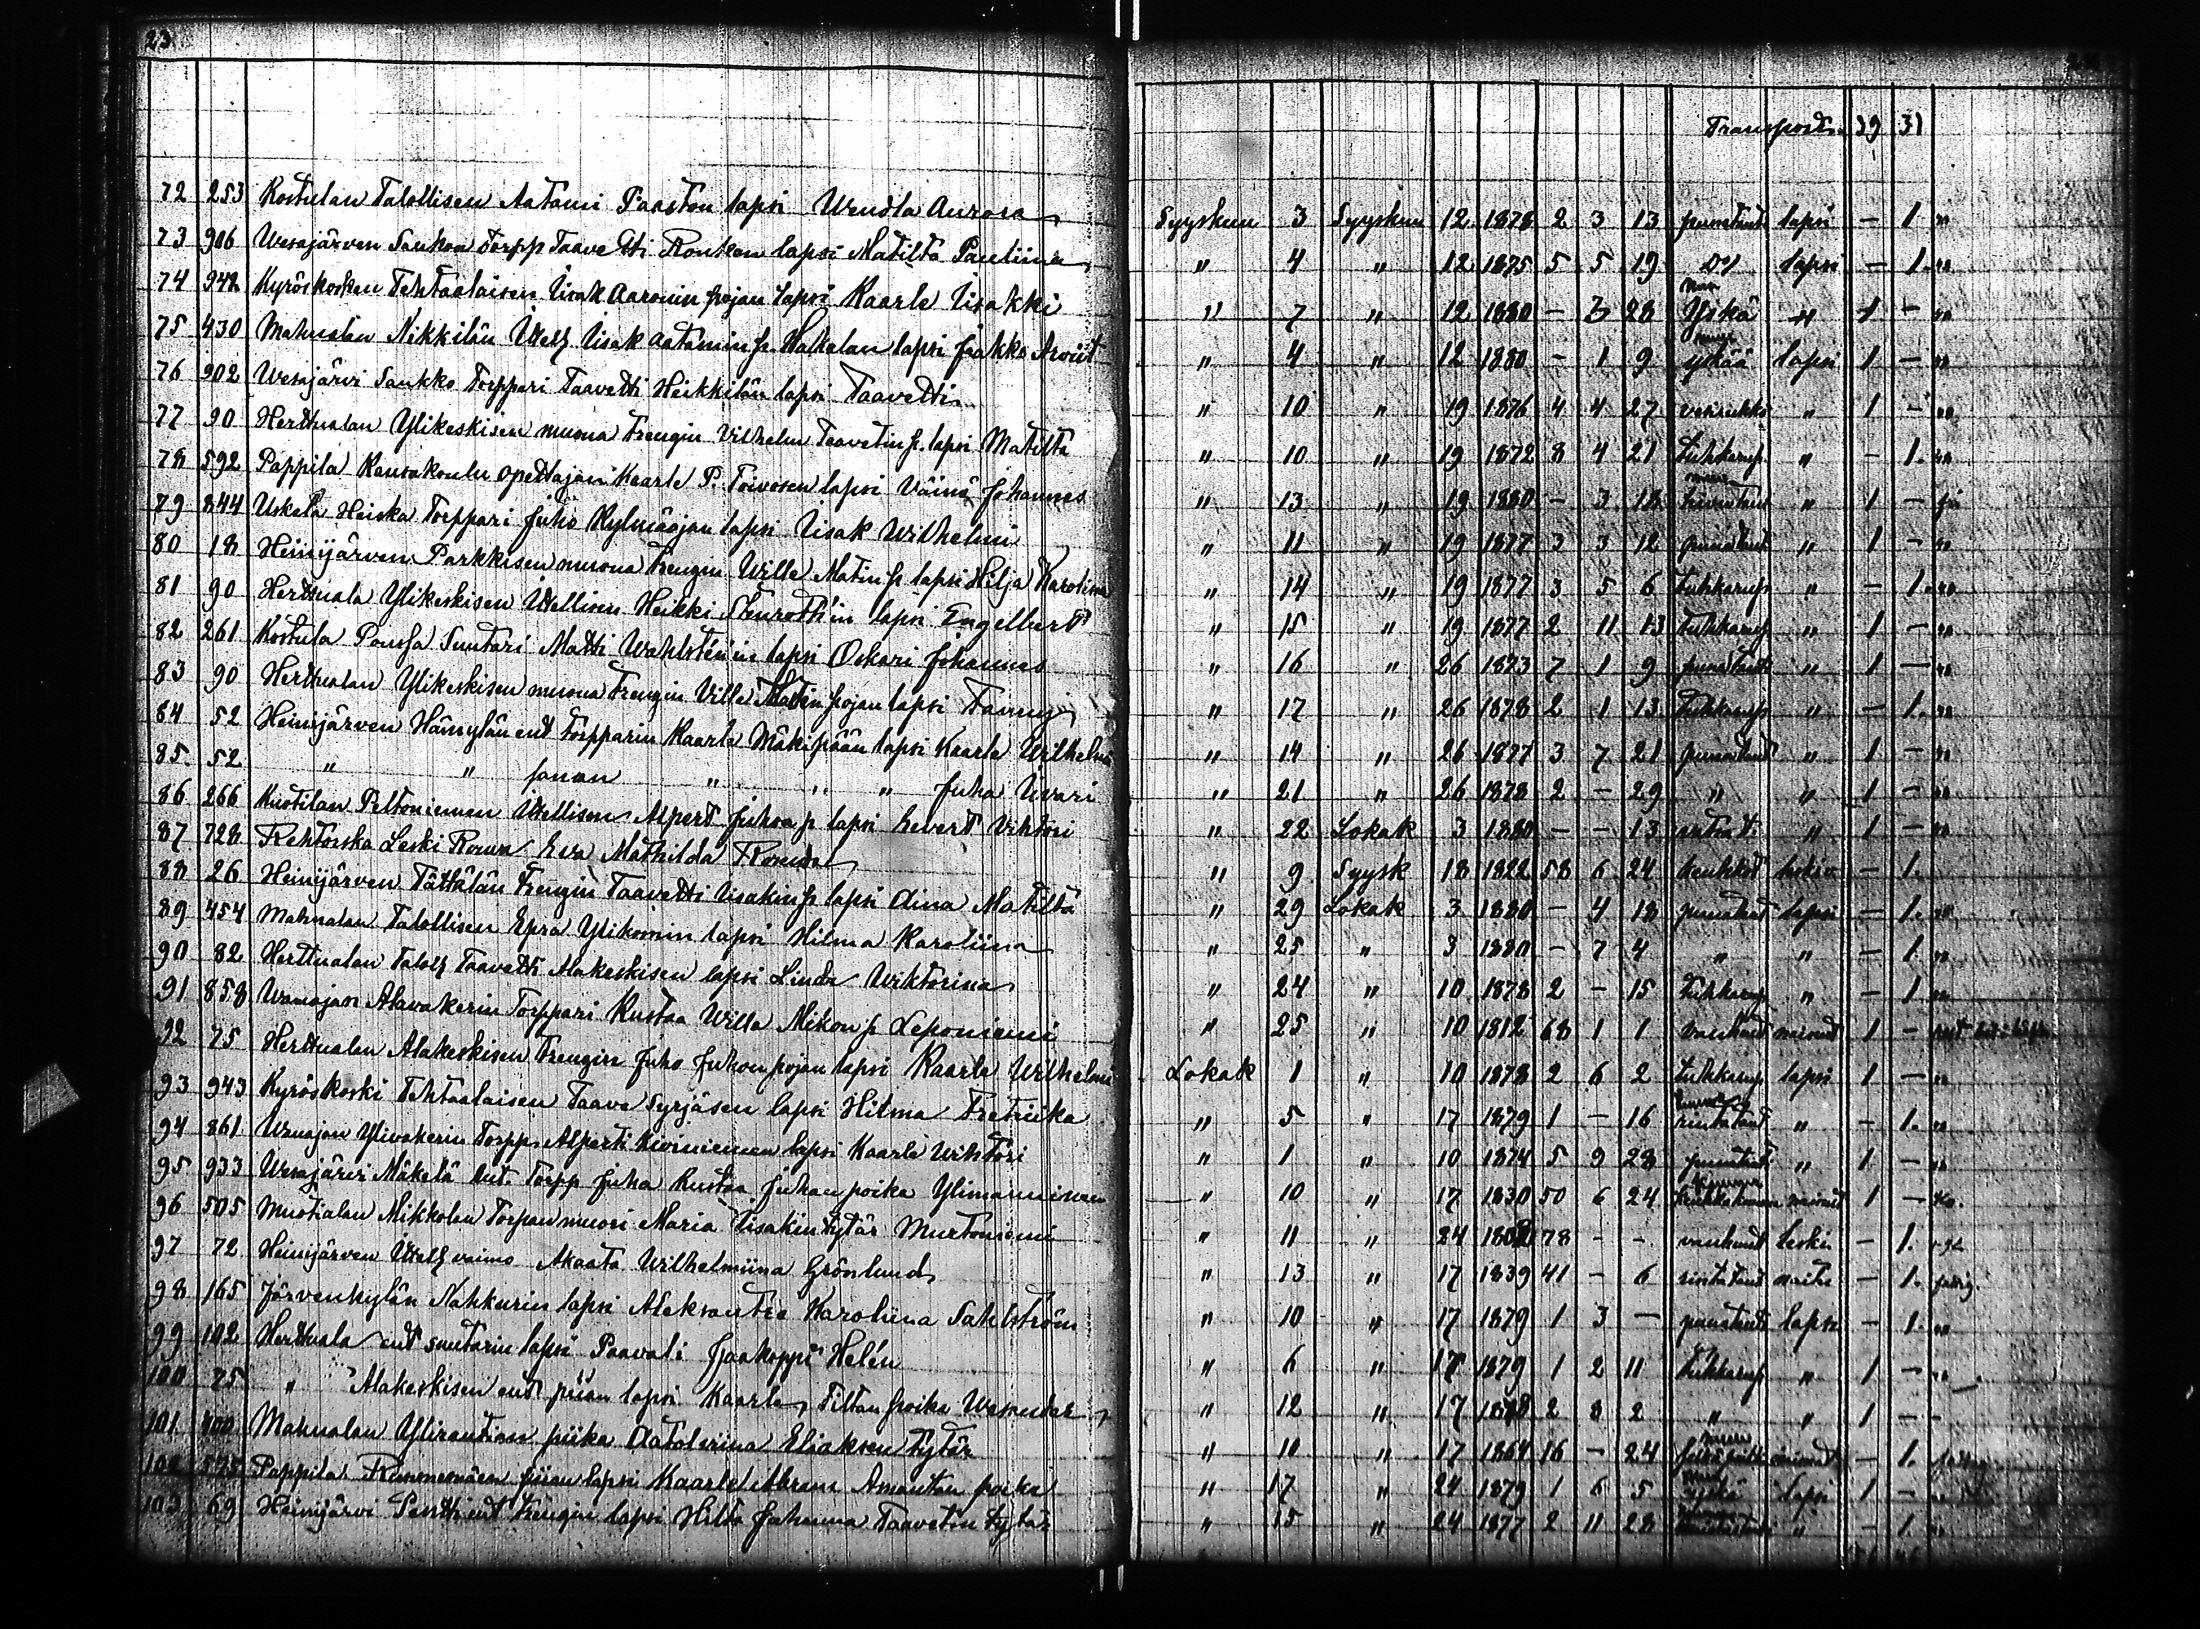 23
Transport. 39 31
72 253 Kostulan Talollisen Aatami Paaston lapsi Wendla Aurora Syyskuu 3 Syyskuu 12 1878 2 3 13 punataut lapsi — 1
73 906 Wesajärven Saukon Torpp Taavetti Rontken lapsi Matilta Pauliina " 4 " 12 1875 5 5 19 Do lapsi — 1
74 942 Kyröskosken Tehtaalaisen Iisak Aaronin pojan lapsi Kaarle Iisakki " 7 " 12 1880 — 3 28 Yskä " 1 —
75 430 Mahnalan Nikkilän Itsell Iisak Aatamin p. Hakalan lapsi Jaakko Arviit " 4 " 12 1880 — 1 9 yskää lapsi 1 —
76 902 Wesajärvi Saukko Torppari Taavetti Heikkilän lapsi Taavetti " 10 " 19 1876 4 4 27 vesirukko " 1 —
77 90 Herttualan Ylikeskisen muona Trengin Vilhelm Taavetin p. lapsi Matilta " 10 " 19 1872 8 4 21 Tuhkarup " — 1
78 592 Pappila Kansakoulu opettajan Kaarle P. Toivosen lapsi Väinö Johannes " 13 " 19 1880 — 3 18 " 1 —
79 844 Uskela Heiska Torppari Juho Kylmäojan lapsi Iisak Wilhelmi " 11 " 19 1877 3 3 12 punataut " 1 —
80 18 Heinijärven Parkkisen muona Trengin Wille Matin p lapsi Hilja Karoliina " 14 " 19 1877 3 5 6 Tuhkarup " — 1
81 90 Herttuala Ylikeskisen Itsellisen Heikki Stenroth'in lapsi Engelbert " 15 " 19 1877 2 11 13 Tuhkarup " 1 —
82 261 Kostula Poussa Suutari Matti Wahlsten'in lapsi Oskari Johannes " 16 " 26 1873 7 1 9 punataut " 1 —
83 90 Herttualan Ylikeskisen muona Trengin Ville Matin pojan lapsi Fanny " 17 " 26 1878 2 1 13 Tuhkarup " — 1
84 52 Heinijärven Hämylän ent Torpparin Kaarle Mäkipään lapsi Kaarle Wilhelmi " 14 " 26 1877 3 7 21 punataut " 1 —
85 52 " " sanan " " " Juha Iivari " 21 " 26 1878 2 — 29 " " 1 —
86 266 Kuotilan Peltoniemen Itsellisen Alpert Juhan p lapsi Evert Vihtori " 22 Lokak 3 1880 — — 13 " 1 —
87 728 Rehtorska Leski Rouva Eva Mathilda " 9 Syysk 18 1822 58 6 24 keuhkot leskiv — 1
88 26 Heinijärven Tättälän Trengin Taavetti Iisakin p lapsi Aina Matilta " 29 Lokak 3 1880 — 4 18 punataut lapsi — 1
89 454 Mahnalan Talollisen Epra Ylikomin lapsi Hilma Karoliina " 25 " 3 1880 — 7 4 " " — 1
90 82 Herttualan Taloll Taavetti Alakeskisen lapsi Linda Wiktoriina " 24 " 10 1878 2 — 15 Tuhkarup " — 1
91 858 Alavakerin Torppari Kustaa Willa Mikon p Leponiemi " 25 " 10 1812 68 1 1 vanhuut 1 —
92 75 Herttualan Alakeskisen Trengin Juho Juhon pojan lapsi Kaarle Wilhelmi Lokak 1 " 10 1878 2 6 2 Tuhkarup lapsi 1 —
93 943 Kyröskoski Tehtaalaisen Taave Syrjäsen lapsi Hilma Fretriika " 5 " 17 1879 1 — 16 rintataut " — 1
94 861 Ylivakerin Torpp. Alpertti Kiviniemen lapsi Kaarle Wihtori " 1 " 10 1874 5 9 28 punataut " 1 —
95 933 Wesajärvi Mäkelä ent. Torpp Juha Kustaa Juhan poika Ylimanninen " 10 " 17 1830 50 6 24 1 —
96 505 Muotialan Mikkolan Torpan muori Maria Iisakin tytär Murtoniemi " 11 " 24 1802 78 — — vanhuut leski — 1
97 72 Heinijärven Itsell vaimo Akaata Wilhelmiina Grönlund " 13 " 17 1839 41 — 6 rintataut — 1
98 165 Järvenkylän Nahkurin lapsi Aleksantra Karoliina Sahlström " 10 " 17 1879 1 3 — punataut lapsi — 1
99 102 Herttuala ent suutarin lapsi Paavali Jaakoppi Helén " 6 " 17 1879 1 2 11 Tuhkarup " 1 —
100 75 " Alakeskisen ent piian lapsi Kaarle Tiltan poika " 12 " 17 1878 2 8 2 " " 1 —
101 400 Mahnalan Ylirautian piika Aatolviina Eliaksen tytär " 10 " 17 1864 16 — 24 — 1
102 575 Pappila piian lapsi Kaarle Abram Amantan poika " 17 " 24 1879 1 6 5 yskä lapsi 1 —
103 69 Heinijärvi Pentti ent Trengin lapsi Hilta Johanna Taavetin tytär " 15 " 24 1877 2 11 28 " — 1